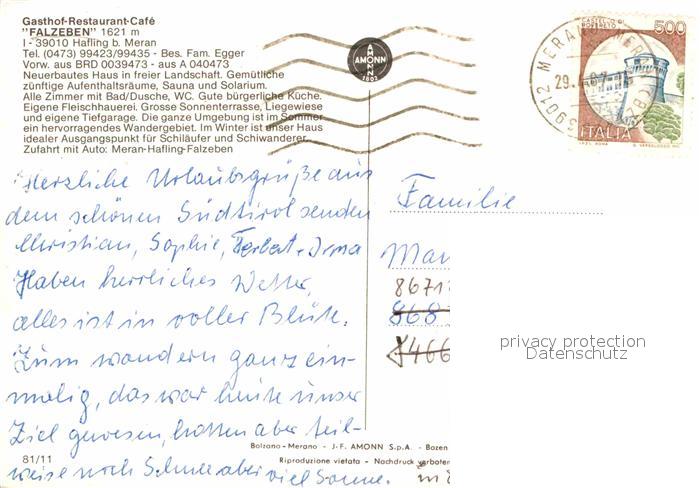 Gasthof-Restaurant-Café
"FALZEBEN" 1621 m
I - 39010 Hafling b. Meran
Tel. (0473) 99423/99435 - Bes. Fam. Egger
Vorw. aus BRD 0039473 - aus A 040473
Neuerbautes Haus in freier Landschaft. Gemütliche
zünftige Aufenthaltsräume, Sauna und Solarium.
Alle Zimmer mit Bad/Dusche, WC. Gute bürgerliche Küche.
Eigene Fleischhauerei. Grosse Sonnenterrasse, Liegewiese
und eigene Tiefgarage. Die ganze Umgebung ist im Sommer
ein hervorragendes Wandergebiet. Im Winter ist unser Haus
idealer Ausgangspunkt für Schiläufer und Schiwanderer.
Zufahrt mit Auto: Meran-Hafling-Falzeben
AMONN
AMONN
500
ITALIA
Herzliche Urlaubsgrüße aus
dem schönen Südtirol senden
Christian, Sophie, Herbert + Irma
Haben herrliches Wetter,
alles ist in voller Blüte.
Zum wandern ganz ein-
malig, das war heute unser
Ziel gewesen, hatten aber teil-
weise noch Schnee aber viel Sonne.
Familie
Mar
8671
868
8466
privacy protection
Datenschutz
Bolzano-Merano - J.-F. AMONN S.p.A. - Bozen
81/11
Riproduzione vietata - Nachdruck verboten